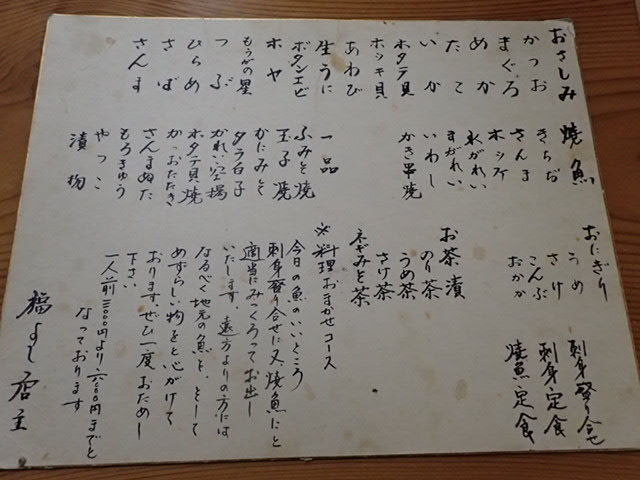 おさしみ
かつお
まぐろ
めか
たこ
いか
ホタテ貝
ホッキ貝
あわび
生うに
ボタンエビ
ホヤ
もうかの星
つぶ
ひらめ
さば
さんま
焼魚
きちぢ
さんま
ホッケ
水がれい
まがれい
いわし
かき串焼
一品
ふみそ焼
玉子焼
かにみそ
タラ白子
かれい空揚
ホタテ貝焼
かつおたたき
さんまぬた
もろきゅう
やっこ
漬物
おにぎり
うめ
さけ
こんぶ
おかか
刺身盛り合せ
刺身定食
焼魚定食
お茶漬
のり茶
うめ茶
さけ茶
ネギみそ茶
※料理おまかせコース
今日の魚のいいところ
刺身盛り合せに又、焼魚にと
適当にみつくろってお出し
いたします。遠方よりの方には
なるべく地元の魚を、そして
めずらしい物をと心がけて
おります。ぜひ一度おためし
下さい
一人前三〇〇〇円より
円までと
なっております
福よし店主